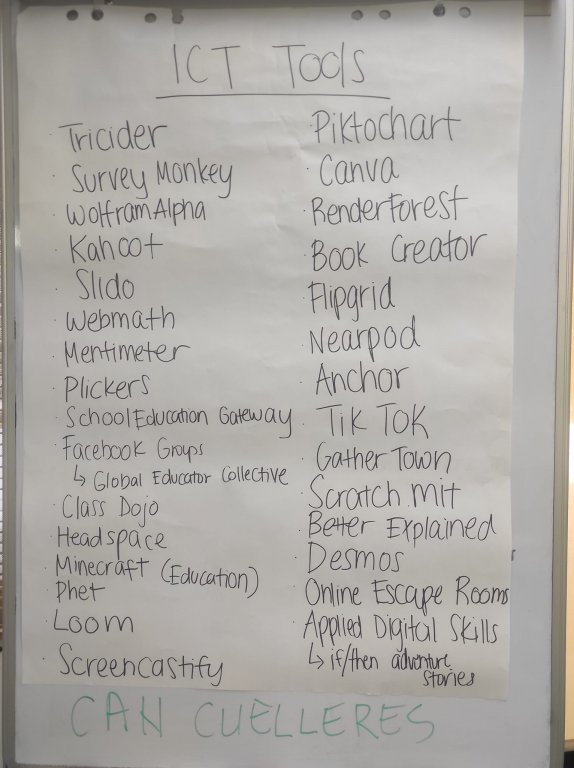 ICT Tools
Tricider
Survey Monkey
WolframAlpha
Kahoot
Slido
Webmath
Mentimeter
Plickers
School Education Gateway
Facebook Groups
↳ Global Educator Collective
Class Dojo
Headspace
Minecraft (Education)
Phet
Loom
Screencastify
Piktochart
Canva
RenderForest
Book Creator
Flipgrid
Nearpod
Anchor
Tik Tok
Gather Town
Scratch mit
Better Explained
Desmos
Online Escape Rooms
Applied Digital Skills
↳ if/then adventure
stories
CAN CUELLERES